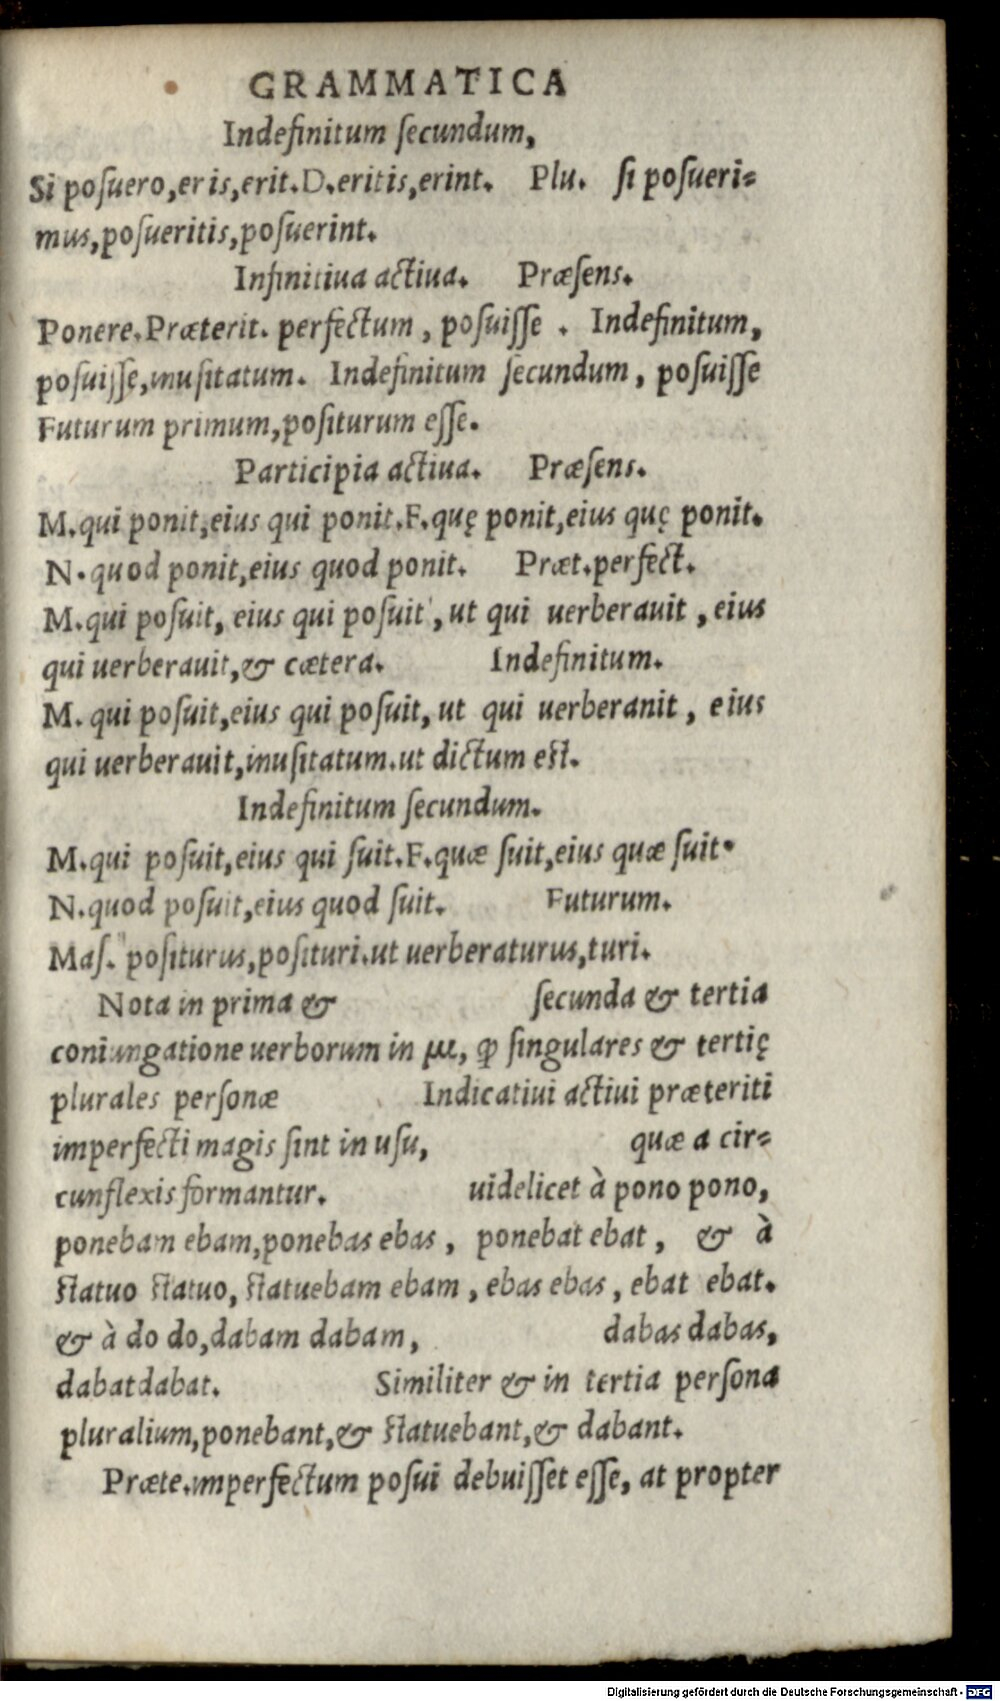 GRAMMATICA
Indefinitum ſecundum,
Si poſuero,eris,erit.D.eritis,erint. Plu. ſi poſueri-
mus,poſueritis,poſuerint.
Infinitiua actiua. Præſens.
Ponere.Præterit. perfectum , poſuiſſe . Indefinitum,
poſuiſſe,inuſitatum. Indefinitum ſecundum , poſuiſſe
Futurum primum,poſiturum eſſe.
Participia actiua. Præſens.
M.qui ponit,eius qui ponit.F.quę ponit,eius quę ponit.
N.quod ponit,eius quod ponit. Præt.perfect.
M.qui poſuit, eius qui poſuit , ut qui uerberauit , eius
qui uerberauit,& cætera. Indefinitum.
M. qui poſuit,eius qui poſuit, ut qui uerberanit , eius
qui uerberauit,inuſitatum.ut dictum eſt.
Indefinitum ſecundum.
M.qui poſuit,eius qui ſuit.F.quæ ſuit,eius quæ ſuit.
N.quod poſuit,eius quod ſuit. Futurum.
Maſ. poſiturus,poſituri.ut uerberaturus,turi.
Nota in prima & ſecunda & tertia
coniungatione uerborum in με, ꝙ ſingulares & tertię
plurales perſonæ Indicatiui actiui præteriti
imperfecti magis ſint in uſu, quæ a cir-
cunflexis formantur. uidelicet à pono pono,
ponebam ebam,ponebas ebas , ponebat ebat , & à
ſtatuo ſtatuo, ſtatuebam ebam , ebas ebas , ebat ebat.
& à do do,dabam dabam, dabas dabas,
dabat dabat. Similiter & in tertia perſona
pluralium,ponebant,& ſtatuebant,& dabant.
Præte.imperfectum poſui debuiſſet eſſe, at propter
Digitalisierung gefördert durch die Deutsche Forschungsgemeinschaft - DFG